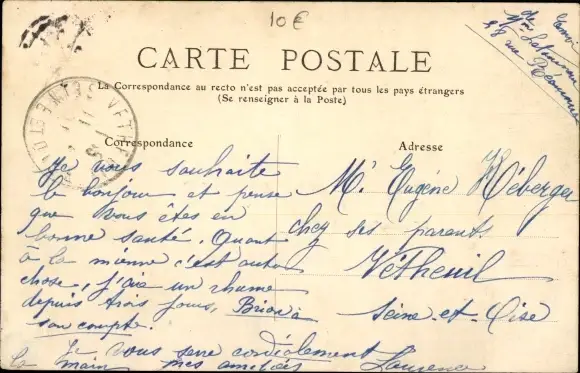 10€
CARTE POSTALE
La Correspondance au recto n'est pas acceptée par tous les pays étrangers
(Se renseigner à la Poste)
Correspondance
Adresse
Je vous souhaite
le bonjour et pense
que vous êtes en
bonne santé. Quant
à la mienne c'est autre
chose, j'aie un rhume
depuis trois jours,
son compte.
Je vous serre cordialement
la main mes amitiés
Laurence
Mr Eugène Héberger
chez ses parents
Vétheuil
Seine-et-Oise
de
58 rue
VETHEUIL
SEINE ET O